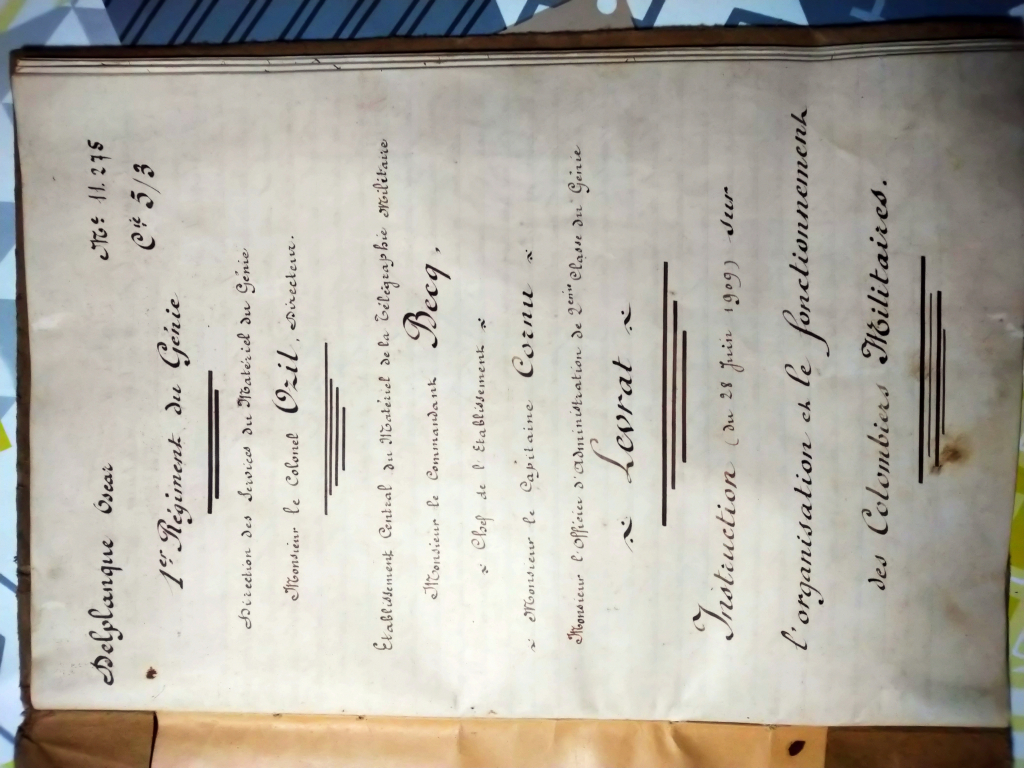 Delplanque Oscar
Nº 11.275
Cie 5/3
1er Régiment du Génie
Direction des Services du Matériel du Génie
Monsieur le Colonel Ozil, Directeur.
Etablissement Central du Matériel de la Télégraphie Militaire
Monsieur le Commandant Becq,
~ Chef de l'Etablissement ~
~ Monsieur le Capitaine Cornu ~
Monsieur l'Officier d'Administration de 2eme Classe du Génie
~ Levrat ~
Instruction (du 28 Juin 1909) sur
l'organisation et le fonctionnement
des Colombiers Militaires.